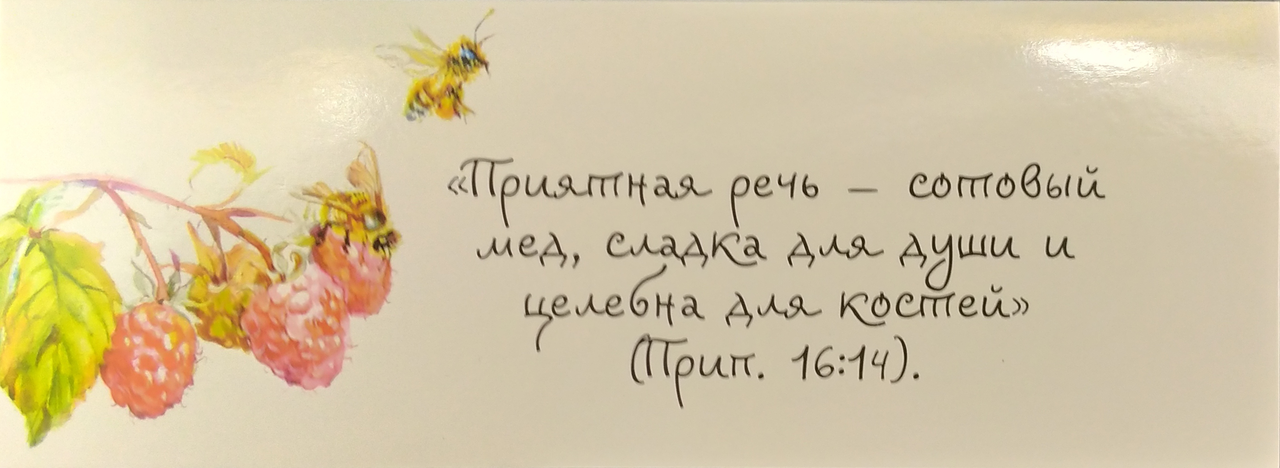 «Приятная речь — сотовый
мед, сладка для души и
целебна для костей»
(Прип. 16:14).